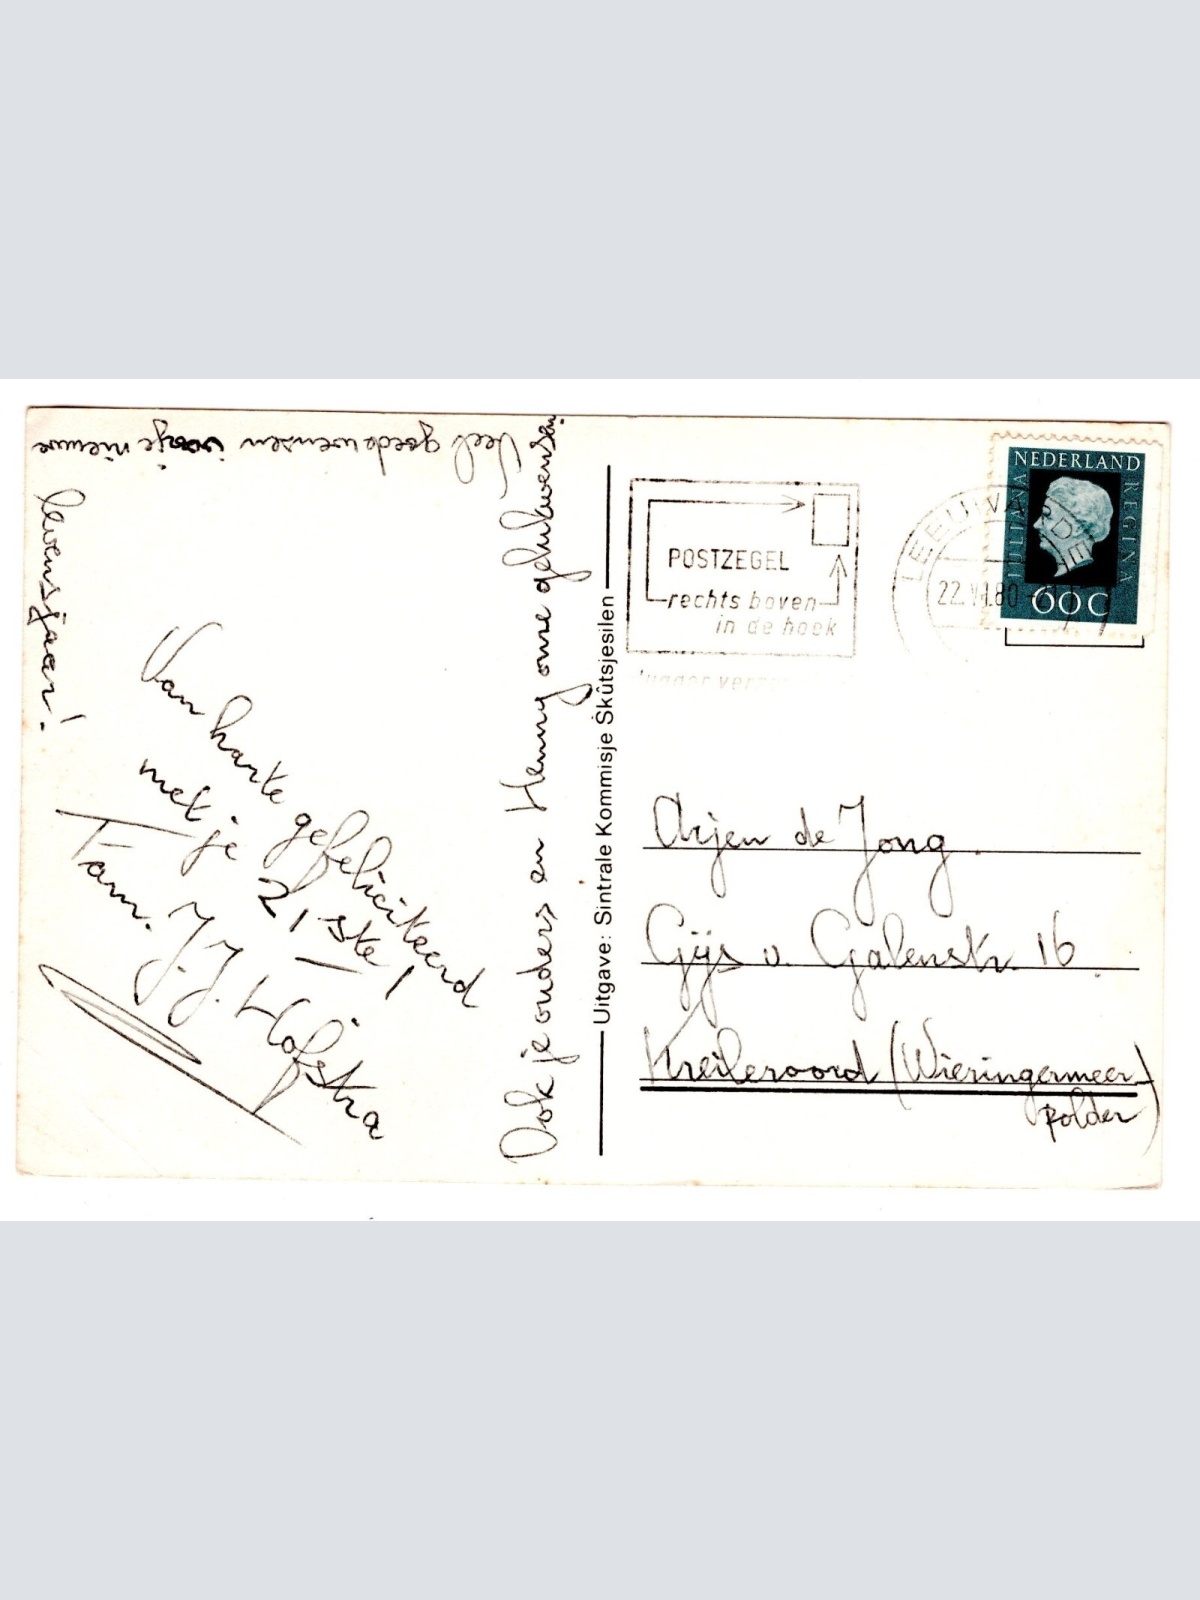 Van harte gefeliciteerd
met je 21ste!
Fam. J.J. Hofstra
Ook je ouders en Henny onze gelukwensen.
Veel goede wensen voor je nieuwe
levensjaar!
Uitgave: Sintrale Kommisje Skûtsjesilen
POSTZEGEL
rechts boven
in de hoek
LEEUWARDEN
22.VII.80
NEDERLAND
JULIANA
REGINA
60 C
Arjen de Jong.
Gijs v. Galenstr. 16
Kreileroord (Wieringermeer
polder)